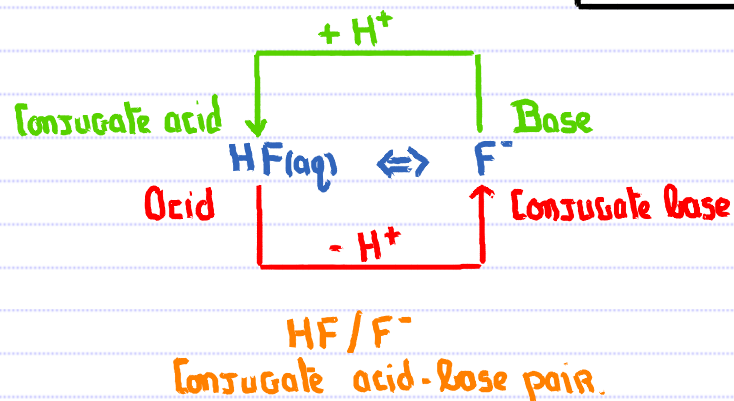 + H⁺
Conjugate acid Base
HF(aq) ⇔ F⁻
Acid Conjugate base
- H⁺
HF/F⁻
Conjugate acid-base pair.